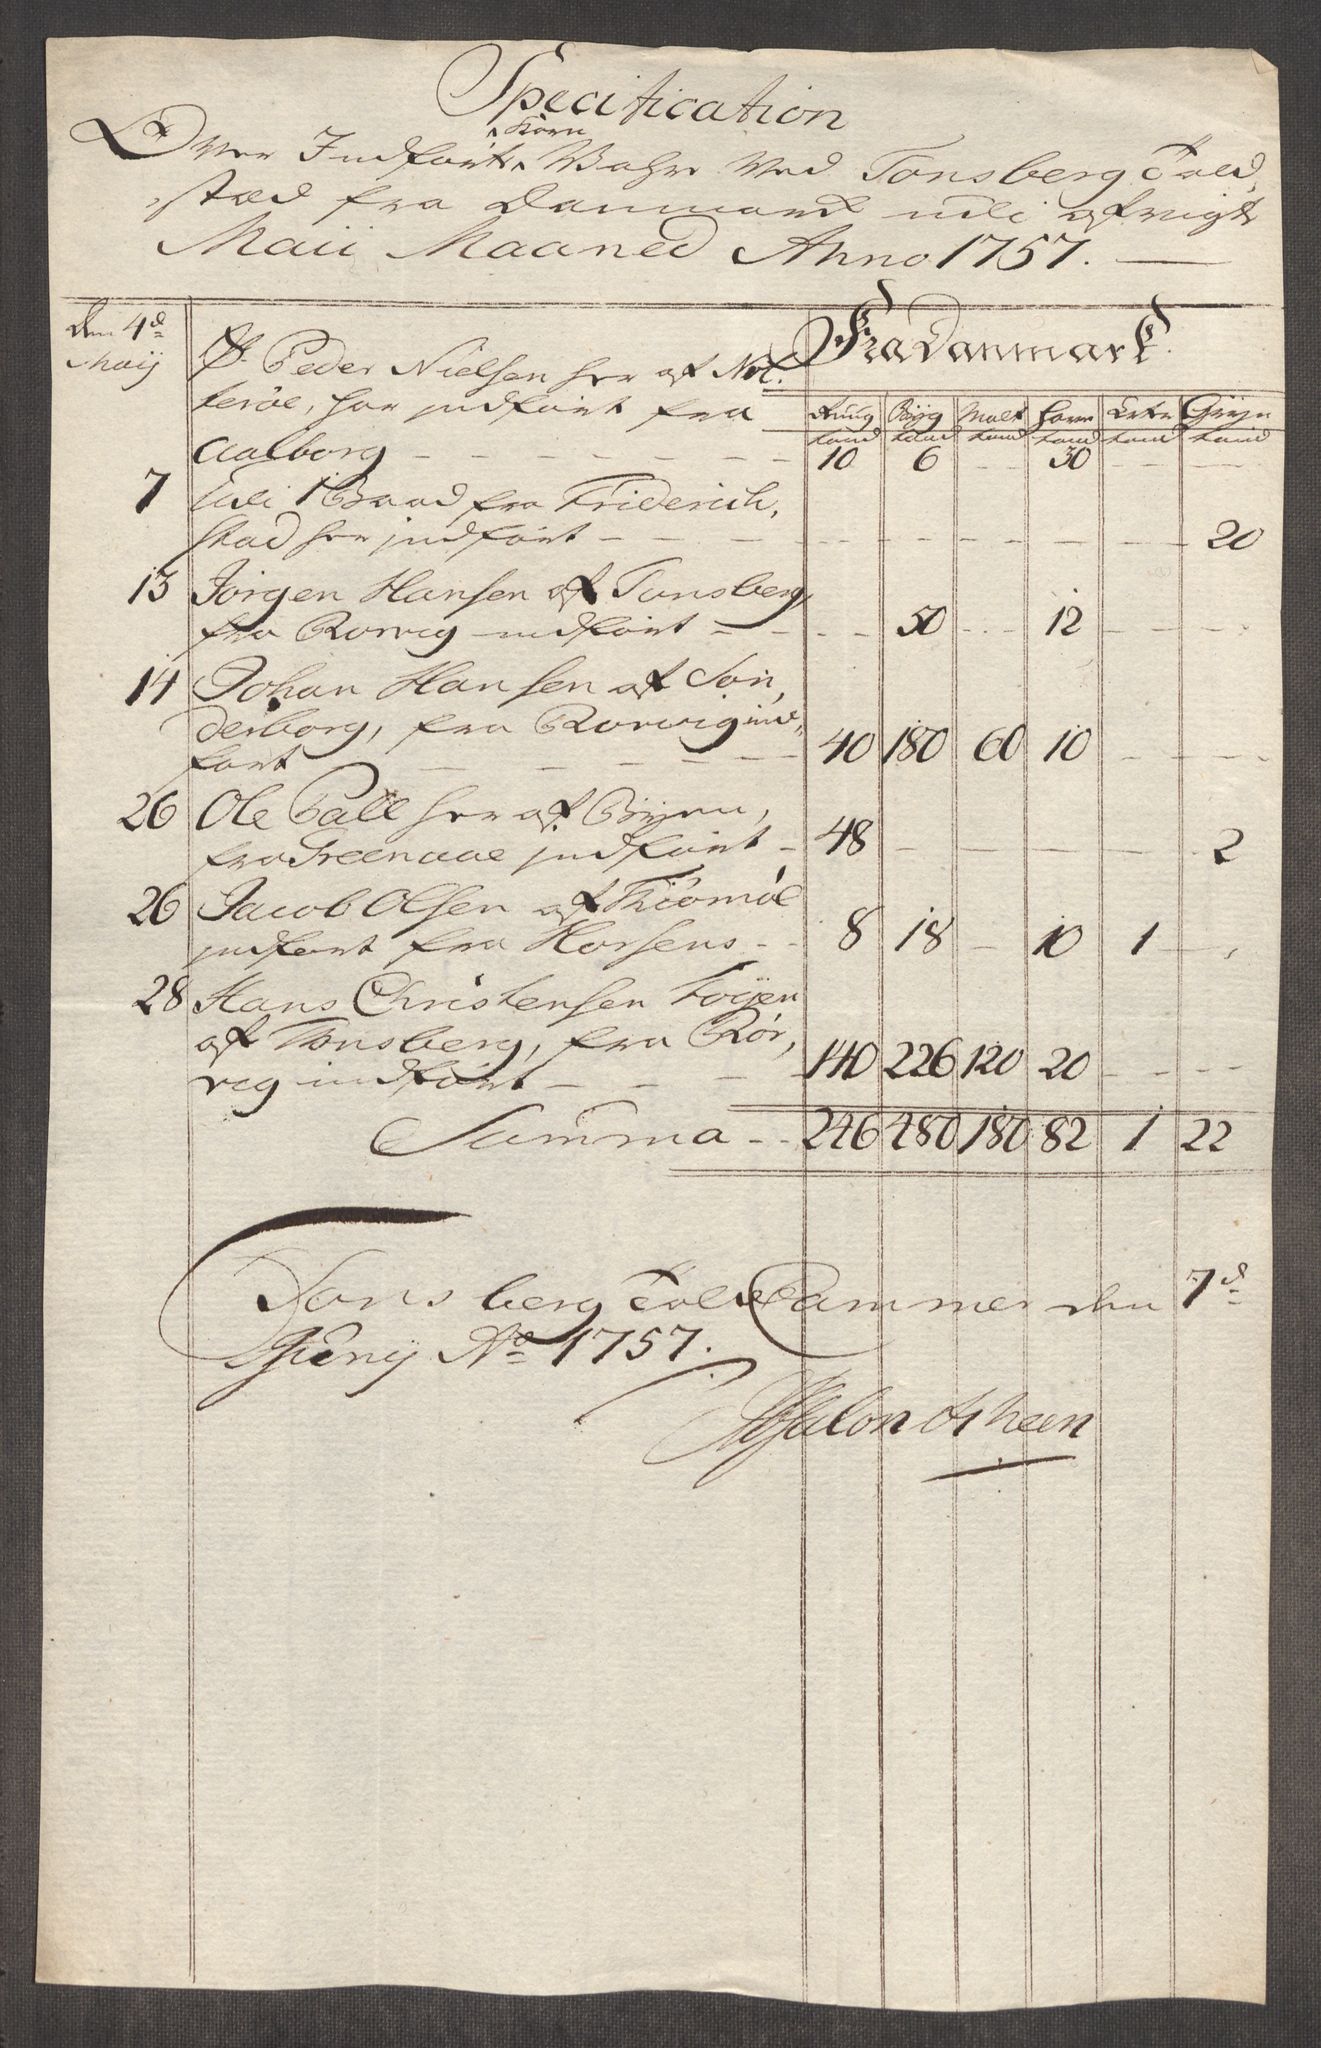 Specification
Over Indført Korn Vahre ved Tønsberg Told,
stæd fra Danmark udi afvigte
Maii Maaned Anno 1757.
Den 4d Maij
Fra Danmark
Rug Byg Malt Havre Erter Gryn
tønd tønd tønd tønd tønd tønd
S. Peder Nielsen her af Not,
terøe, har indført fra
Aalborg - - - 10 6 - 30 - -
7 Udi 1 Baad fra Friderich,
stad her indført - - - 20
13 Jørgen Hansen af Tønsberg,
fra Rorvig indført - - - 50 - 12 - -
14 Johan Hansen af Søn,
derborg, fra Rorvig ind,
ført - - - 40 180 60 10 - -
26 Ole Pall her af Byen,
fra Greenaae indført - 48 - - - - 2
26 Jacob Olsen af Tkiømøe
indført fra Horsens - - 8 18 - 10 1 -
28 Hans Christensen Føyen
af Tønsberg, fra Rør,
vig indført - - - 140 226 120 20 - -
Summa - - 246 480 180 82 1 22
Tønsberg Told Cammer den 7d
Juny Ao 1757.